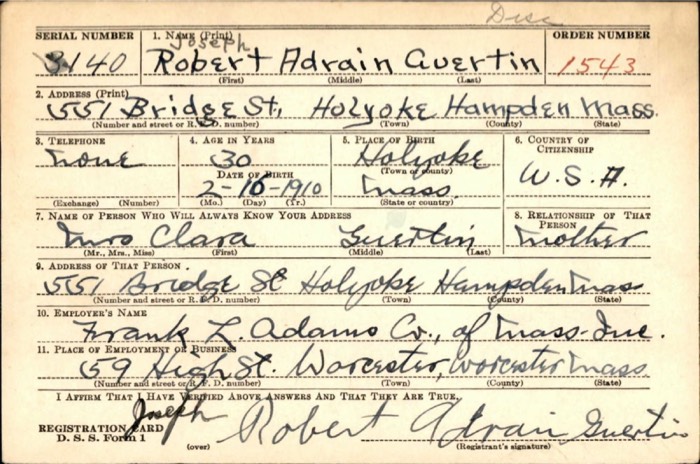 Disc
SERIAL NUMBER 1. NAME (Print) ORDER NUMBER
Joseph
3140 Robert Adrain Guertin 1543
(First) (Middle) (Last)
2. ADDRESS (Print)
551 Bridge St. Holyoke Hampden Mass.
(Number and street or R. F. D. number) (Town) (County) (State)
3. TELEPHONE 4. AGE IN YEARS 5. PLACE OF BIRTH 6. COUNTRY OF CITIZENSHIP
None 30 Holyoke U.S.A.
DATE OF BIRTH (Town or county)
2-10-1910 Mass.
(Exchange) (Number) (Mo.) (Day) (Yr.) (State or country)
7. NAME OF PERSON WHO WILL ALWAYS KNOW YOUR ADDRESS 8. RELATIONSHIP OF THAT PERSON
Mrs Clara Guertin Mother
(Mr., Mrs., Miss) (First) (Middle) (Last)
9. ADDRESS OF THAT PERSON
551 Bridge St Holyoke Hampden Mass
(Number and street or R. F. D. number) (Town) (County) (State)
10. EMPLOYER'S NAME
Frank L. Adams Co., of Mass. Inc.
11. PLACE OF EMPLOYMENT OR BUSINESS
59 High St. Worcester, Worcester Mass
(Number and street or R. F. D. number) (Town) (County) (State)
I AFFIRM THAT I HAVE VERIFIED ABOVE ANSWERS AND THAT THEY ARE TRUE.
Joseph Robert Adrain Guertin
REGISTRATION CARD
D. S. S. Form 1 (over) (Registrant's signature)